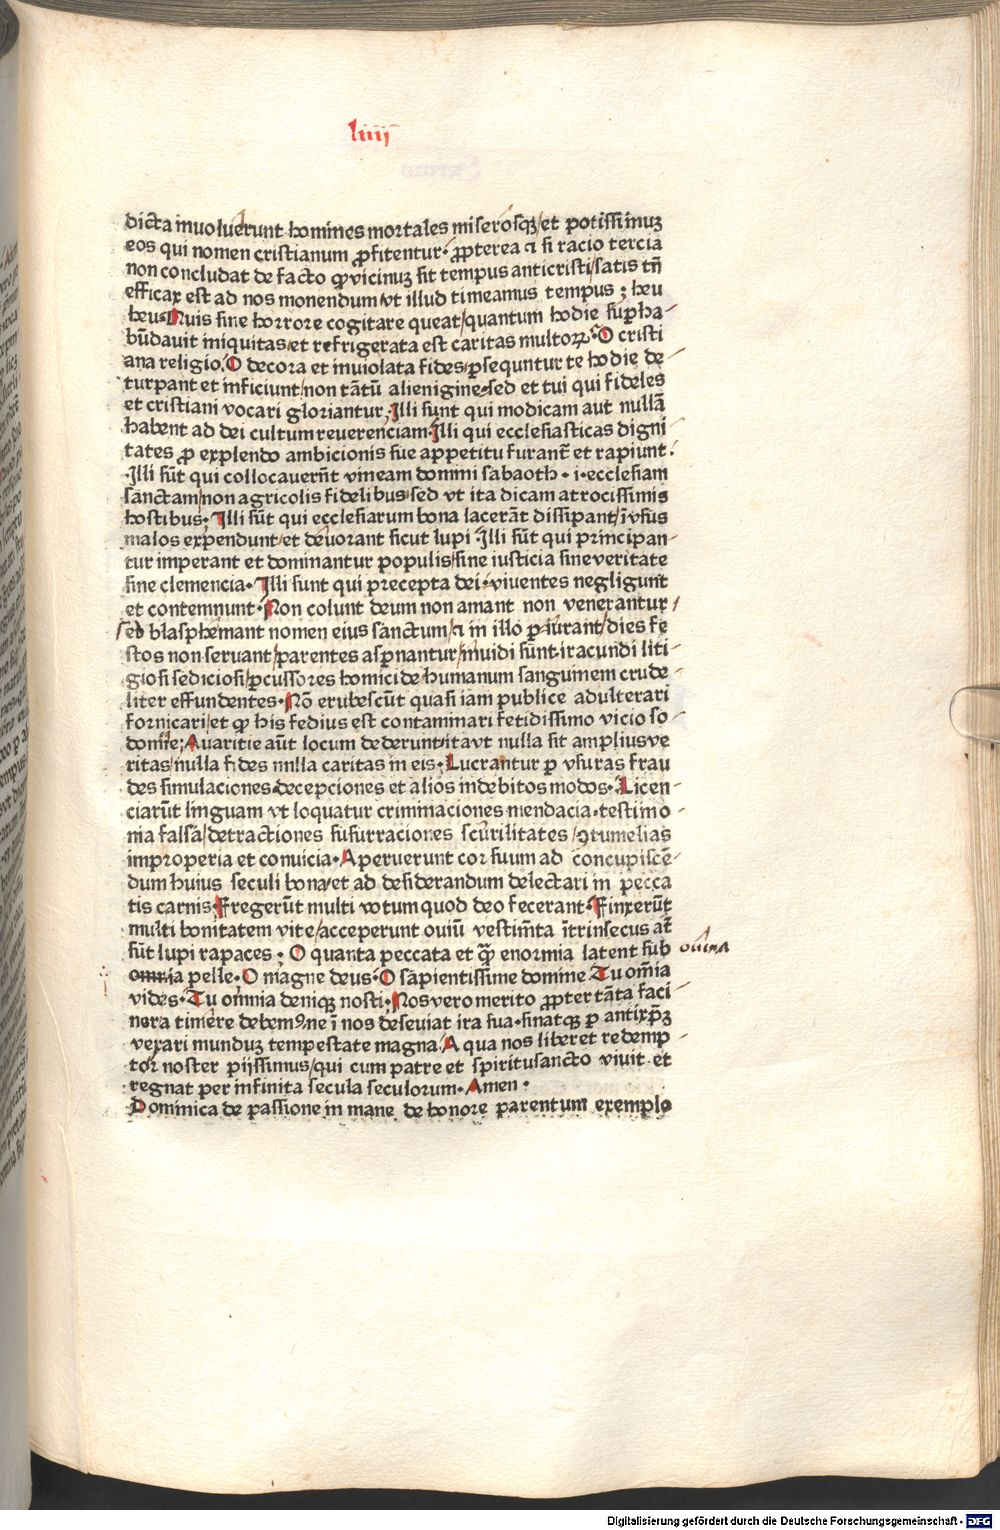 liiij
dicta inuoluerunt homines mortales miserosqꝫ/et potissimuꝫ
eos qui nomen cristianum ꝓfitentur· ꝓpterea ⁊ si racio tercia
non concludat de facto ꝙ vicinuꝫ sit tempus anticristi/satis tn̄
efficax est ad nos monendum/vt illud timeamus tempus ; heu
heu·Nuis sine horrore cogitare queat/quantum hodie suꝑha/
būdauit iniquitas/et refrigerata est caritas multoꝝ·O cristi
ana religio.O decora et inuiolata fides/ꝑsequntur te hodie de/
turpant et inficiunt/non tātū alienigine·sed et tui qui fideles
et cristiani vocari gloriantur,Illi sunt qui modicam aut nullā
habent ad dei cultum reuerenciam·Illi qui ecclesiasticas digni/
tates ꝓ explendo ambicionis sue appetitu furant̄ et rapiunt.
·Illi sūt qui collocauerūt vineam domini sabaoth·i·ecclesiam
sanctam/non agricolis fidelibus/sed vt ita dicam atrocissimis
hostibus·Illi sūt qui ecclesiarum bona lacerāt dissipant/ī vsus
malos expendunt/et deuorant sicut lupi Illi sūt qui principan/
tur imperant et dominantur populis/sine iusticia sine veritate
sine clemencia·Illi sunt qui precepta dei·viuentes negligunt
et contemnunt·Non colunt deum non amant non venerantur/
/sed blasphemant nomen eius sanctum/⁊ in illo ꝑiurant/dies fe
stos non seruant/parentes asꝑnantur/inuidi sunt·iracundi liti/
giosi sediciosi/ꝑcussores homicide/humanum sanguinem crude/
liter effundentes·Nō erubescūt quasi iam publice adulterari
fornicari/et ꝙ his fedius est contaminari fetidissimo vicio so/
domie;Auaritie aūt locum dederunt/ita vt nulla sit amplius ve
ritas/nulla fides nnlla caritas in eis·Lucrantur ꝑ vsuras frau
des simulaciones decepciones et alios indebitos modos·Licen/
ciarūt linguam vt loquatur criminaciones mendacia·testimo/
nia falsa/detractiones susurraciones scurilitates/ꝯtumelias
improperia et conuicia·Aperuerunt cor suum ad concupiscē/
dum huius seculi bona/et ad desiderandum delectari in pecca
tis carnis·Fregerūt multi votum quod deo fecerant·Finxerūt
multi bonitatem vite/acceperunt ouiū vestim̄ta ītrinsecus at̄
sūt lupi rapaces : O quanta peccata et ꝙ̄ enormia latent sub ouina
omnia pelle·O magne deus·O sapientissime domine Tu om̄ia
vides·Tu omnia deniqꝫ nosti·Nos vero merito ꝓpter tāta faci/
nora timere debemꝰ/ne ī nos deseuiat ira sua·sinatqꝫ ꝑ antixp̄ꝫ
vexari munduꝫ tempestate magna·A qua nos liberet redemp/
tor noster pijssimus/qui cum patre et spiritusancto viuit et
regnat per infinita secula seculorum·Amen·
Dominica de passione in mane de honore parentum exemplo
Digitalisierung gefördert durch die Deutsche Forschungsgemeinschaft - DFG